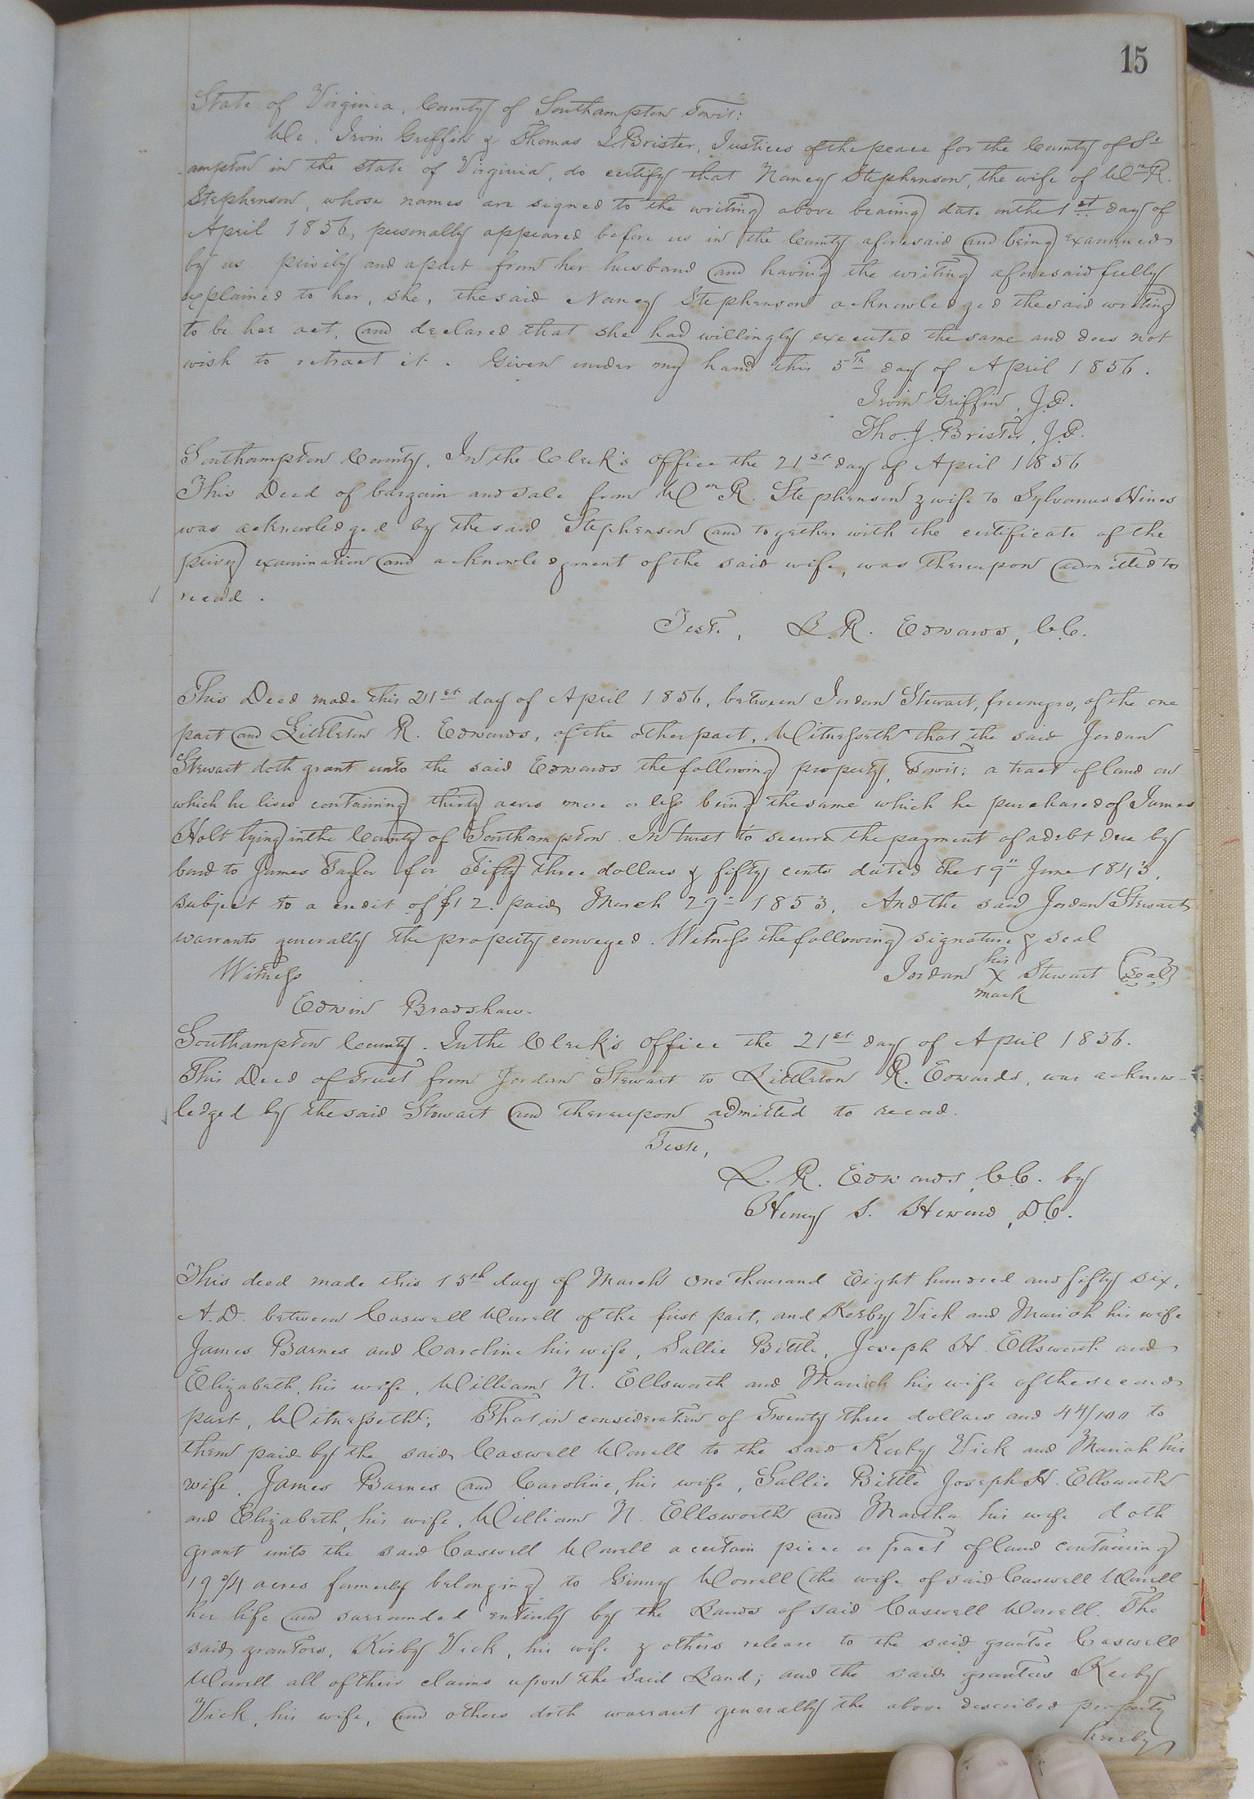 15
State of Virginia, County of Southampton Towit:
We, Irvin Griffin & Thomas J. Brister, Justices of the peace for the County of Sth
ampton in the state of Virginia, do certify that Nancy Stephenson, the wife of Wm R.
Stephenson, whose names are signed to the writing above bearing date on the 1st day of
April 1856, personally appeared before us in the County aforesaid and being examined
by us privily and apart from her husband and having the writing aforesaid fully
explained to her, she, the said Nancy Stephenson acknowledged the said writing
to be her act, and declared that she had willingly executed the same and does not
wish to retract it. Given under my hand this 5th day of April 1856.
Irvin Griffin, J.P.
Tho. J. Brister, J.P.
Southampton County, In the Clerk's office the 21st day of April 1856
This Deed of bargain and sale from Wm R. Stephenson & wife to Sylvanus Hines
was acknowledged by the said Stephenson and together with the certificate of the
privy examination and acknowledgment of the said wife, was thereupon admitted to
record.
Test, L. R. Edwards, C.C.
This Deed made this 21st day of April 1856, between Jordan Stewart, free negro, of the one
part and Littleton R. Edwards, of the other part, Witnesseth that the said Jordan
Stewart doth grant unto the said Edwards the following property, Towit: a tract of land on
which he lives containing thirty acres more or less being the same which he purchased of James
Holt lying in the County of Southampton. In trust to secure the payment of a debt due by
bond to James Taylor for Fifty three dollars & fifty cents dated the 19th June 1843,
subject to a credit of $12. paid March 29th 1853. And the said Jordan Stewart
warrants generally the property conveyed. Witness the following signature & seal
Witness Jordan his X mark Stewart (Seal)
Edwin Bradshaw.
Southampton County. In the Clerk's office the 21st day of April 1856.
This Deed of Trust from Jordan Stewart to Littleton R. Edwards, was acknow-
ledged by the said Stewart and thereupon admitted to record.
Teste,
L. R. Edwards, C.C. by
Henry S. D.C.
This deed made this 15th day of March One thousand Eight hundred and fifty six,
A.D. between Caswell Worrell of the first part, and Kerby Vick and Mariah his wife
James Barnes and Caroline his wife, Sallie Bittle, Joseph H. Ellsworth and
Elizabeth, his wife, William N. Ellsworth and Mariah his wife of the second
part, Witnesseth; That in consideration of Twenty three dollars and 44/100 to
them paid by the said Caswell Worrell to the said Kerby Vick and Mariah his
wife, James Barnes and Caroline, his wife, Sallie Bittle Joseph H. Ellsworth
and Elizabeth, his wife, William N. Ellsworth and Martha his wife doth
grant unto the said Caswell Worrell a certain piece or tract of land containing
19 3/4 acres formerly belonging to Ginny Worrell (the wife of said Caswell Worrell
her life and surrounded entirely by the Lands of said Caswell Worrell. The
said grantors, Kirby Vick, his wife & others release to the said grantee Caswell
Worrell all of their claims upon the said Land; and the said grantors Kerby
Vick, his wife, and others doth warrant generally the above described property
hereby